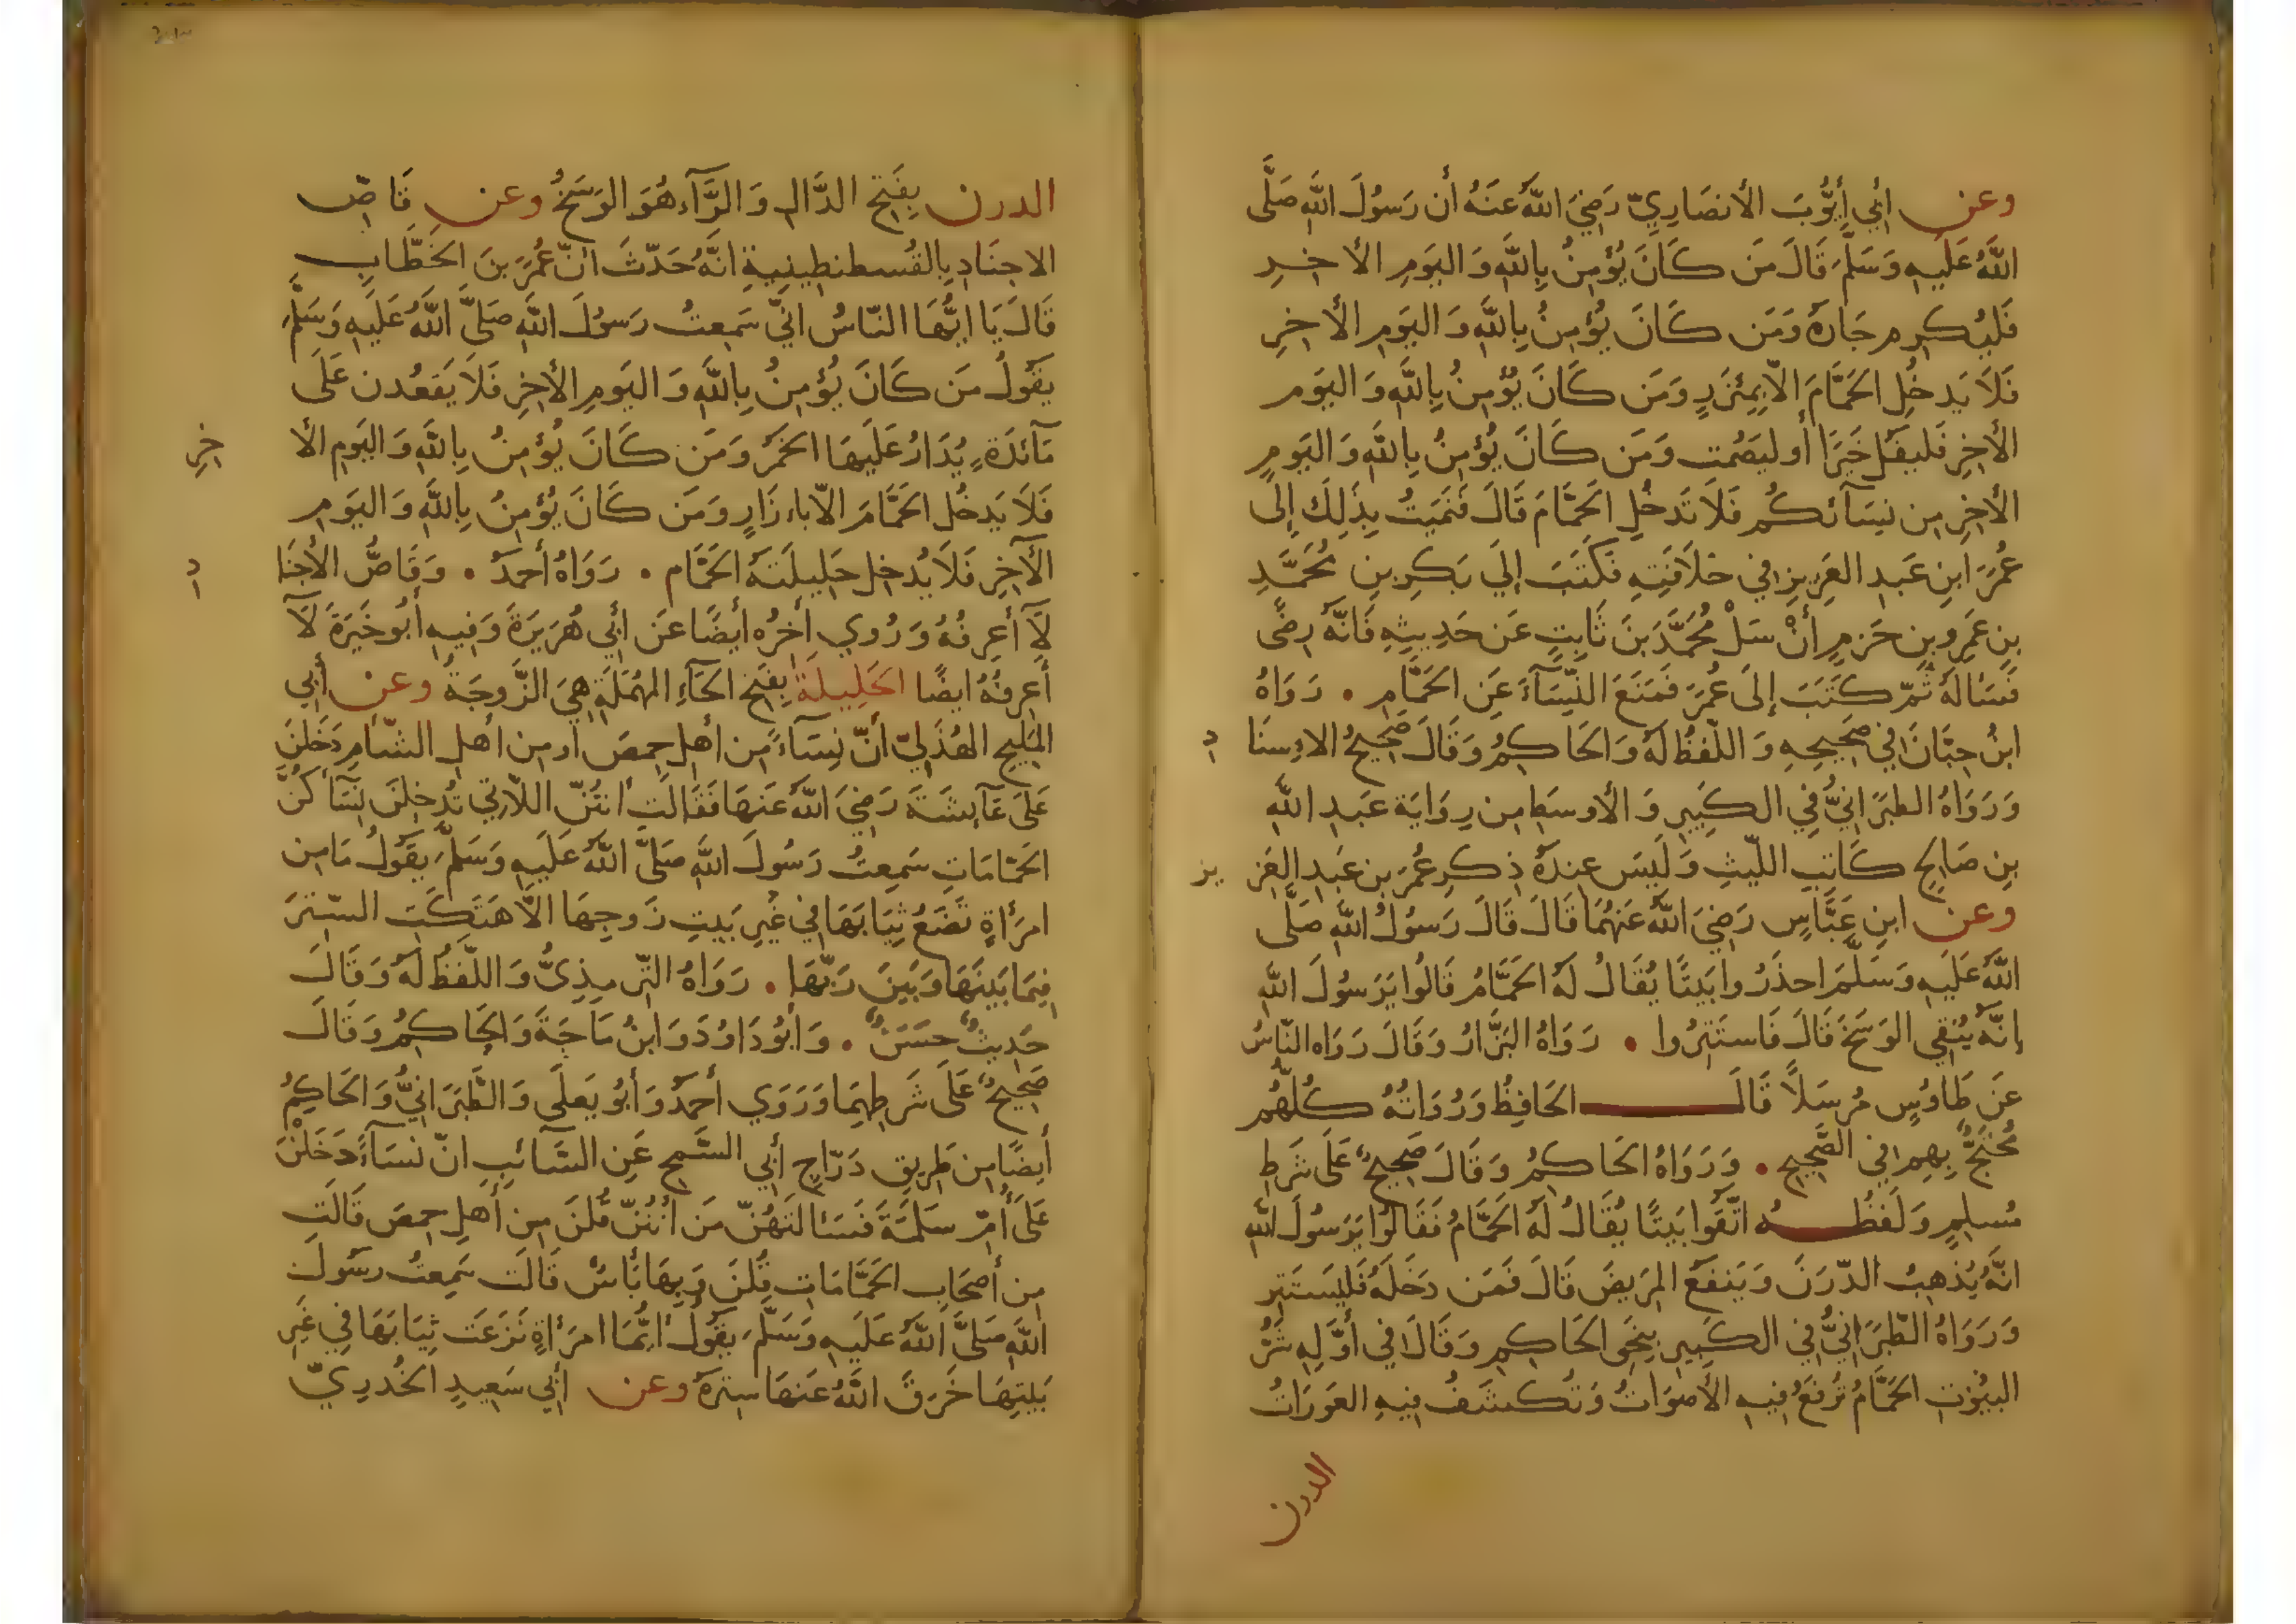 وعن أَبِي أَيُّوبَ الأَنصَارِيِّ رَضِيَ اللهُ عَنهُ أَن رَسُولَ اللهِ صَلَّى
اللهُ عَلَيهِ وَسَلَّمَ قَالَ مَن كَانَ يُؤمِنُ بِاللهِ وَاليَومِ الأخِرِ
فَليُكرِم جَارَهُ وَمَن كَانَ يُؤمِنُ بِاللهِ وَاليَومِ الأخِرِ
فَلَا يَدخُلِ الحَمَّامَ الّا بِمِئزَرٍ وَمَن كَانَ يُؤمِنُ بِاللهِ وَاليَومِ
الأخِرِ فَليَقُل خَيرًا أَو ليَصمُت وَمَن كَانَ يُؤمِنُ بِاللهِ وَاليَومِ
الأخِرِ مِن نِسَآئكُم فَلَا تَدخُلِ الحَمَّامَ قَالَ فَنَمَيتُ بِذَلِكَ إلَى
عُمَرَ ابنِ عَبدِ العَزِيزِ فِي خلَافَتِهِ فَكَتَبَ إلَي بَكرِ بنِ مُحَمَّدِ
بنِ عَمرِو بنِ حَزمٍ أَنْ سَلْ مُحَمَّدَ بنَ ثَابِتٍ عَن حَدِيثِهِ فَانَّهُ رِضًى
فَسَالَهُ ثُمّ كَتَبَ إلَى عُمَرَ فَمَنَعَ النِّسَآءَ عَنِ الحَمَّامِ . رَوَاهُ
ابنُ حِبَّانَ فِي صَحِيحِهِ وَاللّفظُ لَهُ وَالحَاكِمُ وَقَالَ صَحِيحُ الاِسنَا د
وَرَوَاهُ الطبَرَانِيُّ فِي الكَبِيرِ وَالأوسَطِ مِن رِوَايَة عَبدِ اللهِ
بنِ صَالِحٍ كَاتِبِ اللّيثِ وَلَيسَ عِندَهُ ذِكر عُمَرَ بن عَبدِ العَزِ يز
وعن ابنِ عَبَّاسٍ رَضِيَ اللهُ عَنهُمَا قَالَ قَالَ رَسُولُ اللهِ صَلَّى
اللهُ عَلَيهِ وَسَلَّمَ احذَرُوا بَيتًا يُقَالُ لَهُ الحَمَّامُ قَالُوا يَرَسُولَ اللهِ
إنَّهُ يُنقِي الوَسَخَ قَالَ فَاستَتِرُوا . رَوَاهُ البَزَّارُ وَقَالَ رَوَاه النّاسُ
عَن طَاوُسٍ مُرسَلًا قَالَ الحَافِظُ وَرُوَاتُهُ كُلُّهُم
مُحتَجٌّ بِهِم فِي الصَّحِيحِ . وَرَوَاهُ الحَاكِمُ وَقَالَ صَحِيحٌ عَلَى شَرطِ
مُسلِمٍ وَلَفظُهُ اتَّقُوا بَيتًا يُقَالُ لَهُ الحَمَّامُ فَقَالُوا يَرَسُولَ اللهِ
انَّهُ يُذهِبُ الدّرَنَ وَيَنفَعُ المَرِيضَ قَالَ فَمَن دَخَلَهُ فَليَستَتِر
وَرَوَاهُ الطّبَرَانِيُّ فِي الكَبِيرِ بِنَحوِ الحَاكِمِ وَقَالَ فِي أَوَّلِهِ شَرُّ
البُيُوتِ الحَمَّامُ تُرفَعُ فِيهِ الأَصوَاتُ وَتُكشَفُ فِيهِ العَورَاتُ
الدرن
الدرن بِفَتحِ الدَّالِ وَالرَّآءِ هُوَ الوَسَخُ وعن قَاصِّ
الاجنَادِ بِالقُسطنطِينِيةِ انَّهُ حَدّثَ انّ عُمَرَ بنَ الخَطَّابِ
قَالَ يَا ايُّهَا النّاسُ انِّي سَمِعتُ رَسُولَ اللهِ صَلَّى اللهُ عَلَيهِ وَسَلَّمَ
يَقُولُ مَن كَانَ يُؤمِنُ بِاللهِ وَاليَومِ الأخِرِ فَلَا يَقعُدن عَلَى
مَآئدَةٍ يُدَارُ عَلَيهَا الخَمرُ وَمَن كَانَ يُؤمِنُ بِاللهِ وَاليَومِ الأ خِرِ
فَلَا يَدخُلِ الحَمَّامَ الّا باِزَارٍ وَمَن كَانَ يُؤمِنُ بِاللهِ وَاليَومِ
الآخِرِ فَلَا يُدخِل حَلِيلَتَهُ الحَمَّام . رَوَاهُ أَحمَدُ . وَقَاصُّ الأَجنَا دِ
لَآ أَعرِفُهُ وَرُوِي أَخِرُه أَيضًا عَن أَبِي هُرَيرَةَ وَفِيهِ أَبُو خَيرَةَ لَآ
أَعرِفُهُ ايضًا الحَلِيلَة بِفَتحِ الحَآءِ المُهمَلَةِ هِيَ الزَّوجَةُ وعن أَبِي
المَلِيحِ الهُذَلِيّ أَنّ نِسَآءً مِن أَهلِ حِمصَ أَو مِن أَهلِ الشّامِ دَخَلنَ
عَلَى عَآيِشَةَ رَضِيَ اللهُ عَنهَا فَقَالَت أَنتُنّ اللّاتِي تُدخِلنَ نِسَآكُنَّ
الحَمّامَاتِ سَمِعتُ رَسُولَ اللهِ صَلَّى اللهُ عَلَيهِ وَسَلَّمَ يَقُولُ مَا مِن
امرَأَةٍ تَضَعُ ثِيَابَهَا فِي غَيرِ بَيتِ زَوجِهَا الَّا هَتَكَتِ السّترَ
فِيمَا بَينَهَا وَبَينَ رَبِّهَا . رَوَاهُ التّرمِذِيُّ وَاللّفظُ لَهُ وَقَالَ
حَدِيثٌ حَسَنٌ . وَأَبُو دَاوُدَ وَابنُ مَاجَةَ وَالحَاكِمُ وَقَالَ
صَحِيحٌ عَلَى شَرطِهِمَا وَرَوَي أَحمَدُ وَأَبُو يَعلَى وَالطَّبَرَانِيُّ وَالحَاكِمُ
أَيضًا مِن طَرِيقِ دَرّاجٍ أَبِي السَّمحِ عَنِ السَّائبِ انّ نسَآءً دَخَلْنَ
عَلَى أُمِّ سَلَمَةَ فَسَالَتهُنّ مَن أَنتُنّ قُلنَ مِن أَهلِ حِمصَ قَالَت
مِن أَصحَابِ الحَمَّامَاتِ قُلنَ وَبِهَا بَأسٌ قَالَت سَمِعتُ رسُولَ
اللهِ صَلَّى اللهُ عَلَيهِ وَسَلَّمَ يَقُولُ أَيُّمَا امرَأَةٍ نَزَعَت ثِيَابَهَا فِي غَيرِ
بَيتِهَا خَرَقَ اللهُ عَنهَا سِترَهُ وعن أَبِي سَعِيدٍ الخُدرِيّ